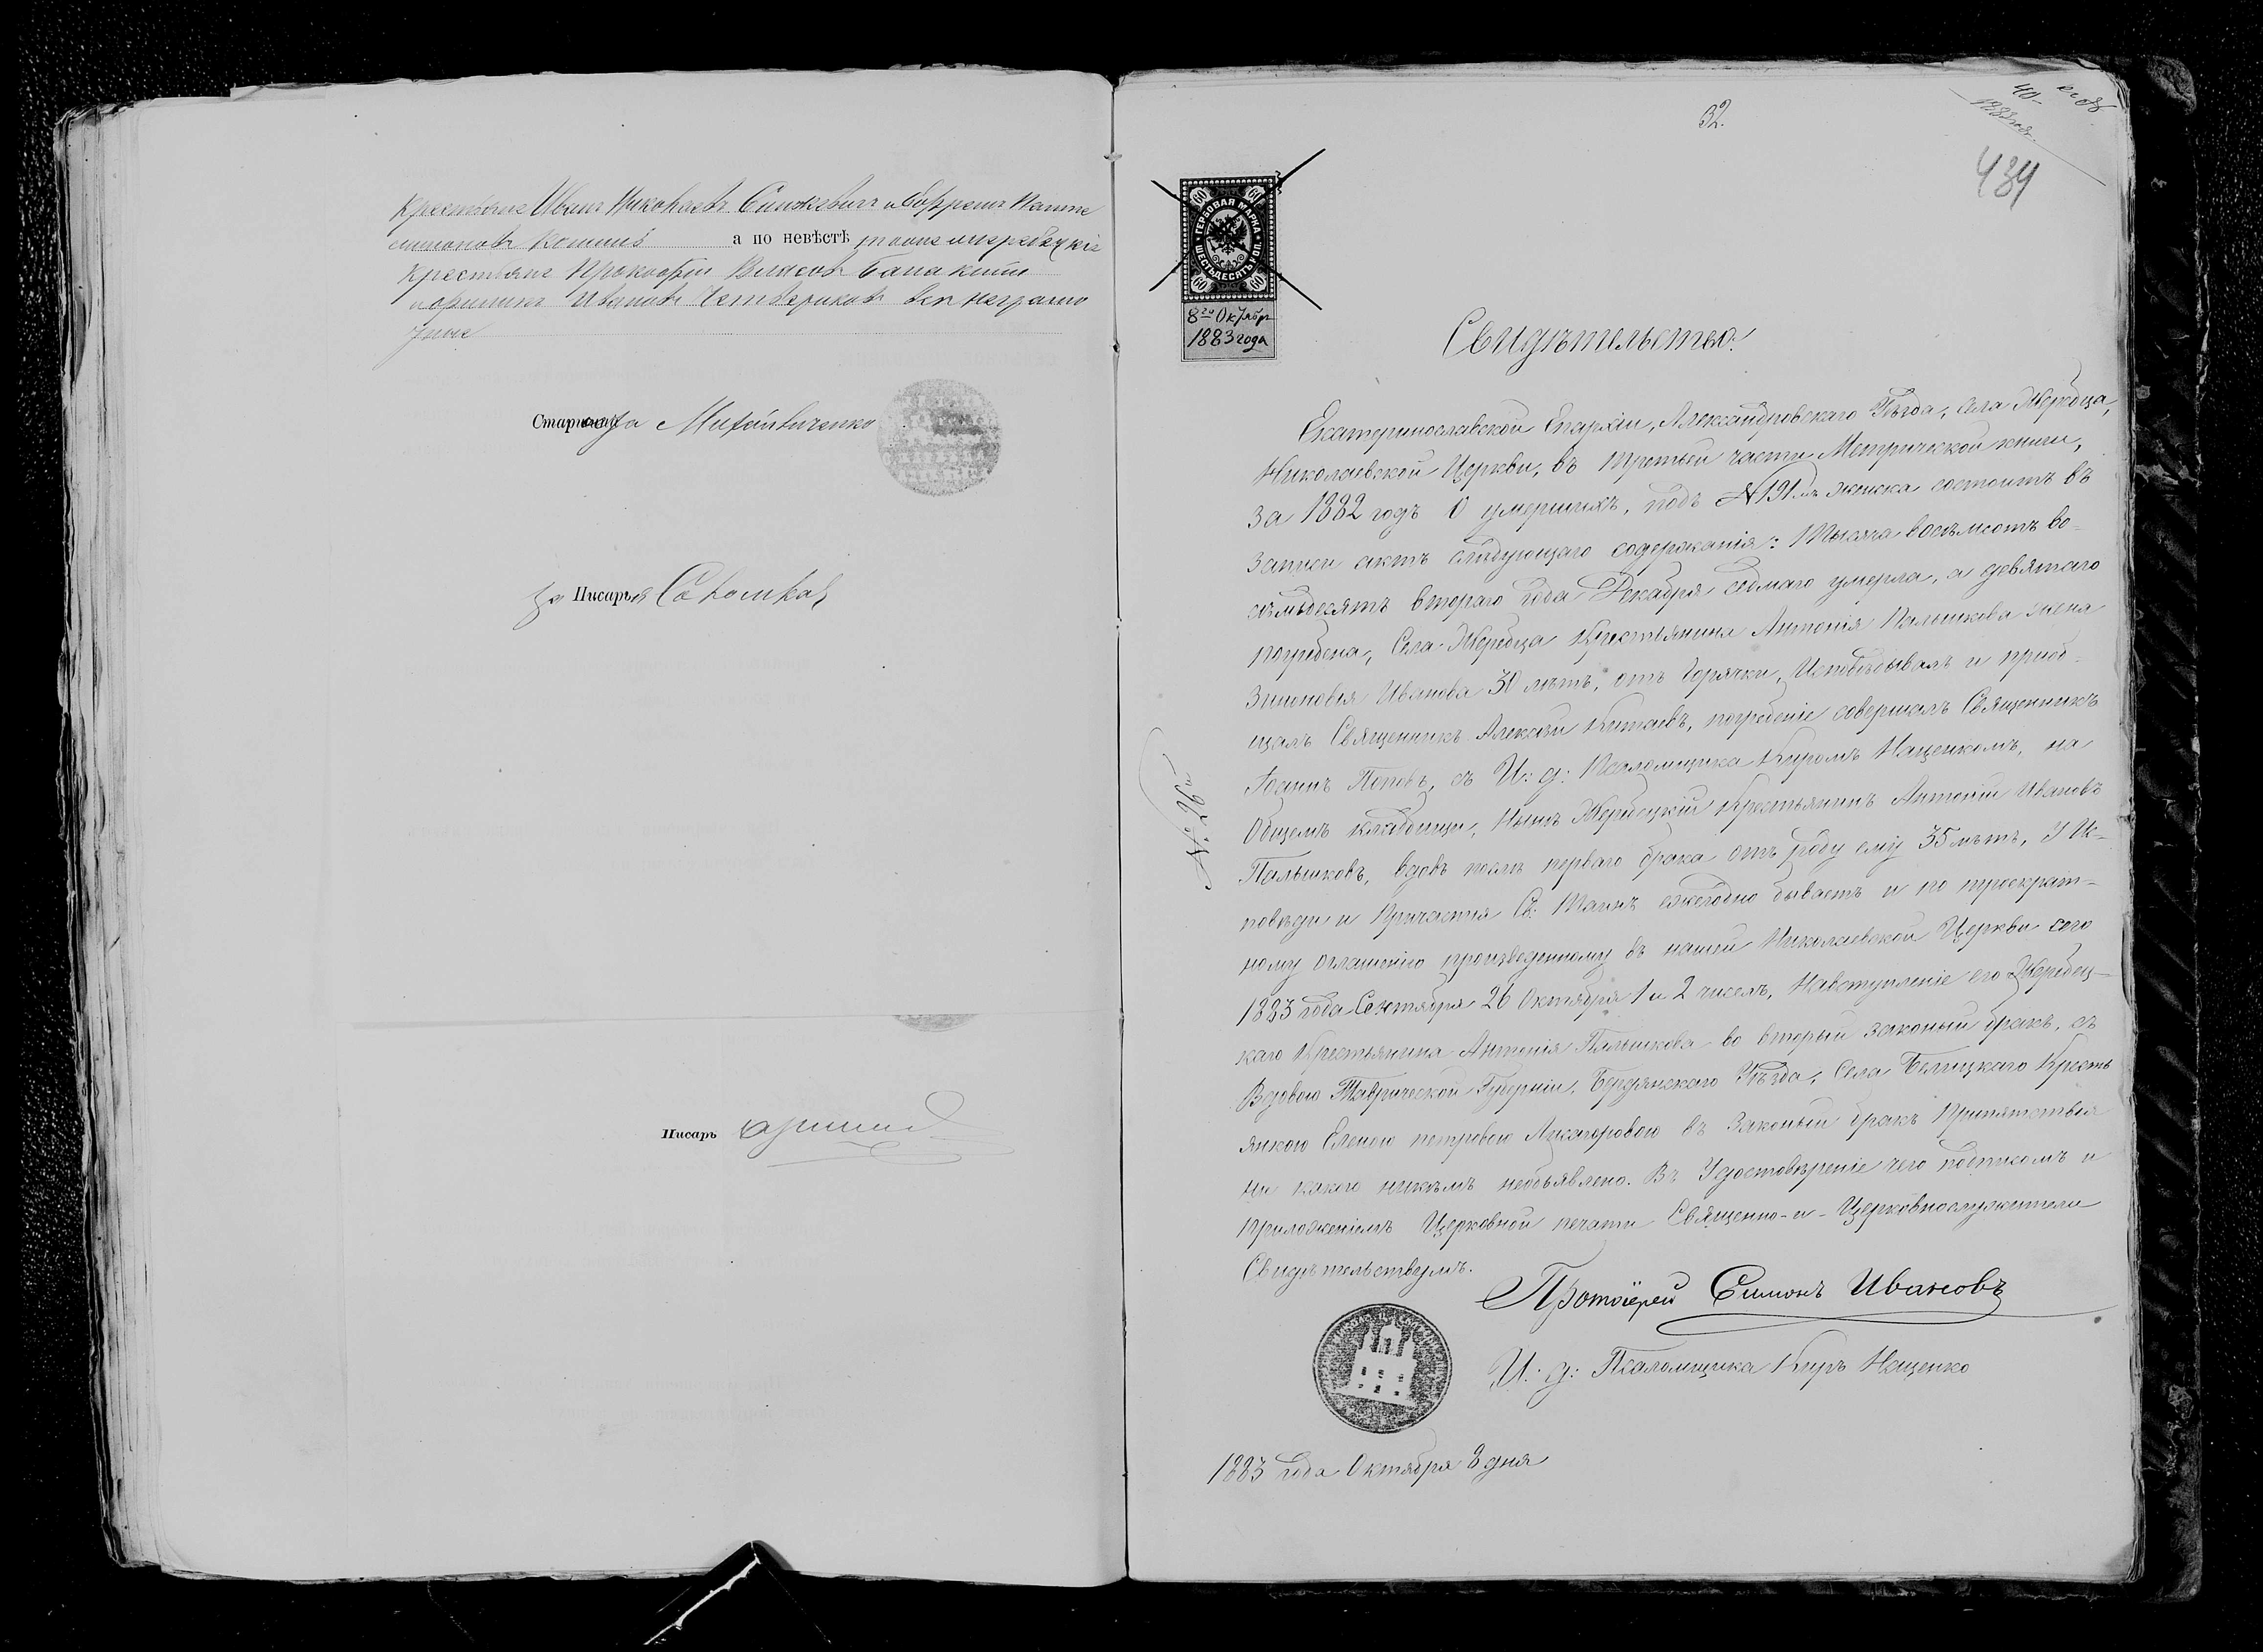 Крестьяне Иванъ Николаевъ
а по невѣстѣ
Крестьяне Прокофій Власовъ
Ивановъ Четвериковъ все неграмо
тные
Старшина
за Писаря
Писарь
32.
40
434
60 60
ГЕРБОВАЯ МАРКА
ШЕСТЬДЕСЯТЪ КОП.
60 60
8го Октября
1883 года
Свидѣтельство.
Екатеринославской Епархіи, Александровскаго Уѣзда, села Жеребца,
Николаевской Церкви, въ третьей части Метрической книги,
за 1882 годъ О умершихъ, подъ №191мъ женска состоитъ въ
записи актъ слѣдующаго содержанія: Тысяча восемьсотъ во-
семьдесятъ втораго года Декабря седмаго умерла, а девятаго
погребена, Села Жеребца Крестьянина Антонія Пальшкова жена
Зиновія Иванова 30 лѣтъ, отъ Горячки, Исповѣдывалъ и приоб-
щалъ Священникъ Алексѣй Китаевъ, погребеніе совершалъ Священникъ
Іоаннъ Поповъ, съ И: д: Псаломщика Киромъ Нащенкомъ, на
Общемъ кладбищѣ, Нынѣ Жеребецкій Крестьянинъ Антоній Ивановъ
Пальшковъ, вдовъ послѣ перваго брака отъ роду ему 35 лѣтъ, У Ис-
повѣди и Причастія Св: Таинъ ежегодно бываетъ и по троекрат-
ному оглашенію произведенному въ нашей Николаевской Церкви сего
1883 года Сентября 26 Октября 1 и 2 чиселъ, На вступленіе его Жеребец-
каго Крестьянина Антонія Пальшкова во вторый законый бракъ, съ
Вдовою Таврической Губерніи, Бердянскаго Уѣзда, Села Крестъ
янкою Еленою петровою въ Законый бракъ Припятствія
ни какого никѣмъ необъявлено. Въ Удостовѣреніе чего подписомъ и
приложеніемъ Церковной печати Священно-и-Церковнослужители
Свидѣтельствуемъ.
№ 26й
Протоіерей Симонъ Ивановъ
И: д: Псаломщика Киръ Нащенко
1883 года Октября 8 дня